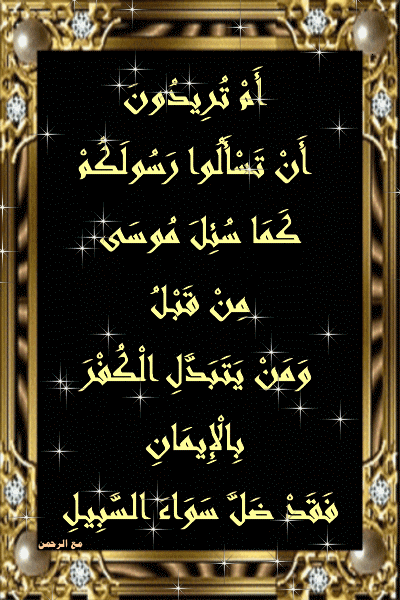 أَمْ تُرِيدُونَ
أَنْ تَسْأَلُوا رَسُولَكُمْ
كَمَا سُئِلَ مُوسَى
مِنْ قَبْلُ
وَمَنْ يَتَبَدَّلِ الْكُفْرَ
بِالْإِيمَانِ
فَقَدْ ضَلَّ سَوَاءَ السَّبِيلِ
مع الرحمن